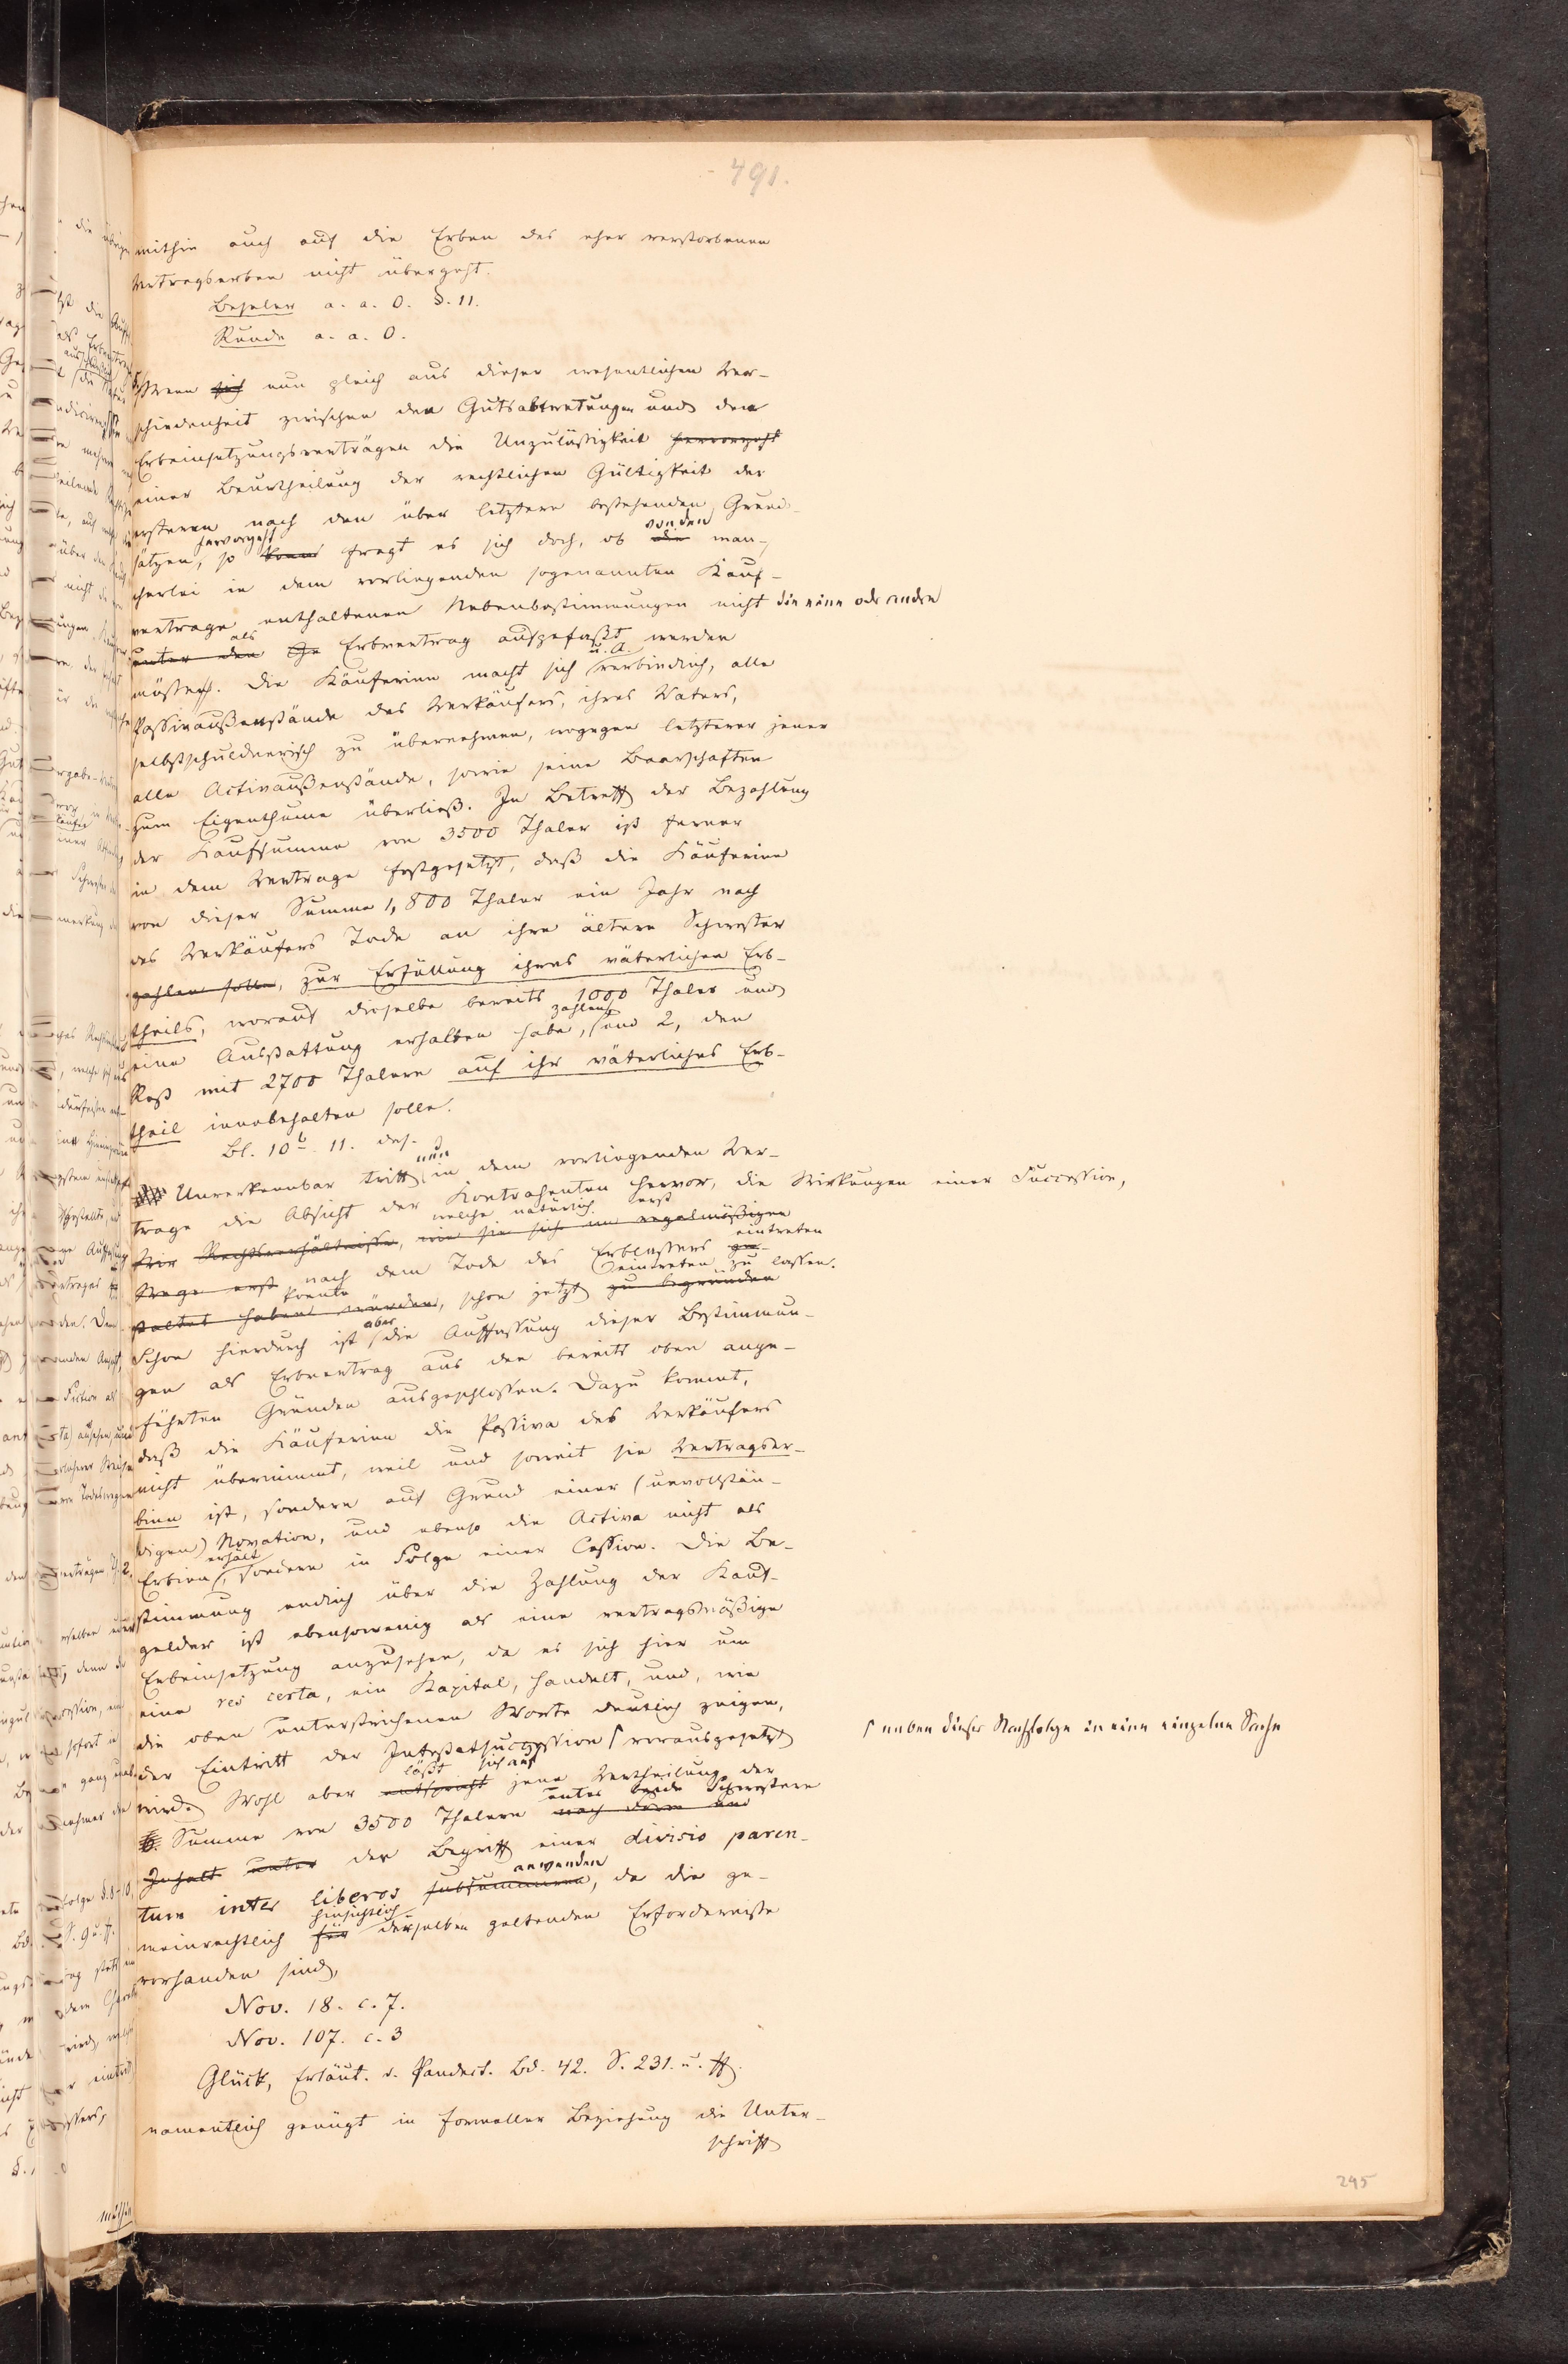 491.
mithin auch auf die Erben des eher verstorbenen
Vertragserben nicht übergeht.
Beseler a. a. O. §. 11.
Runde a. a. O.
Wenn sich nun gleich aus dieser wesentlichen Ver-
schiedenheit zwischen den Gutsabtretungen und den
Erbeinsetzungsverträgen die Unzulässigkeit hervorgeht
einer Beurtheilung der rechtlichen Gültigkeit der
ersteren nach den über letztere bestehenden Grund-
hervorgeht von den
sätzen, so fragt es sich doch, ob die man-
cherlei in dem vorliegenden sogenannten Kauf-
vertrage enthaltenen Nebenbestimmungen nicht die eine oder andre
als
unter den Erbvertrag aufgefaßt werden
u. A.
müssen. Die Käuferinn macht sich verbindlich, alle
Passivaußenstände des Verkäufers, ihres Vaters,
selbstschuldnerisch zu übernehmen, wogegen letzterer jener
alle Activaußenstände, sowie seine Baarschaften
zum Eigenthume überließ. In Betreff der Bezahlung
der Kaufsumme von 3500 Thaler ist ferner
in dem Vertrage festgesetzt, daß die Käuferinn
von dieser Summe 1, 800 Thaler ein Jahr nach
des Verkäufers Tode an ihre ältere Schwester
zahlen solle, zur Erfüllung ihres väterlichen Erb-
theils, worauf dieselbe bereits 1000 Thaler und
zahlen
eine Ausstattung erhalten habe, und 2, den
Rest mit 2700 Thalern auf ihr väterliches Erb-
theil innebehalten solle.
Bl. 10b. 11. das.
nun
Unverkennbar tritt in dem vorliegenden Ver-
trage die Absicht der Kontrahenten hervor, die Wirkungen einer Succession,
welche natürlich erst
Rechtsverhältnisse, wie sie sich im regelmäßigen
eintreten
Wege erst nach dem Tode des Erblassers ge-
konnte eintreten zu lassen.
staltet haben würden, schon jetzt zu begründen
aber
Schon hierdurch ist die Auffassung dieser Bestimmun-
gen als Erbvertrag aus den bereits oben ange-
führten Gründen ausgeschlossen. Dazu kommt,
daß die Käuferinn die Passiva des Verkäufers
nicht übernimmt, weil und soweit sie Vertragser-
binn ist, sondern auf Grund einer (unvollstän-
digen) Novation, und ebenso die Activa nicht als
erhält
Erbinn, sondern in Folge einer Cession. Die Be-
stimmung endlich über die Zahlung der Kauf-
gelder ist ebensowenig als eine vertragsmäßige
Erbeinsetzung anzusehen, da es sich hier um
eine res certa, ein Kapital, handelt, und, wie
die oben unterstrichenen Worte deutlich zeigen,
der Eintritt der Intestatsuccession ſ vorausgesetzt
ſ neben dieser Nachfolge in eine einzelne Sache
läßt sich auf
wird. Wohl aber entspricht jene Vertheilung der
unter beide Schwestern
Summe von 3500 Thalern nach Form und
Inhalt unter der Begriff einer divisio paren-
anwenden
tum inter liberos subsummiren, da die ge-
hinsichtlich
meinrechtlich für derselben geltenden Erfordernisse
vorhanden sind,
Nov. 18. c. 7.
Nov. 107. c. 3
Glück, Erläut. d. Pandect. Bd. 42. S. 231. u. ff.
namentlich genügt in formeller Beziehung die Unter-
schrift
295